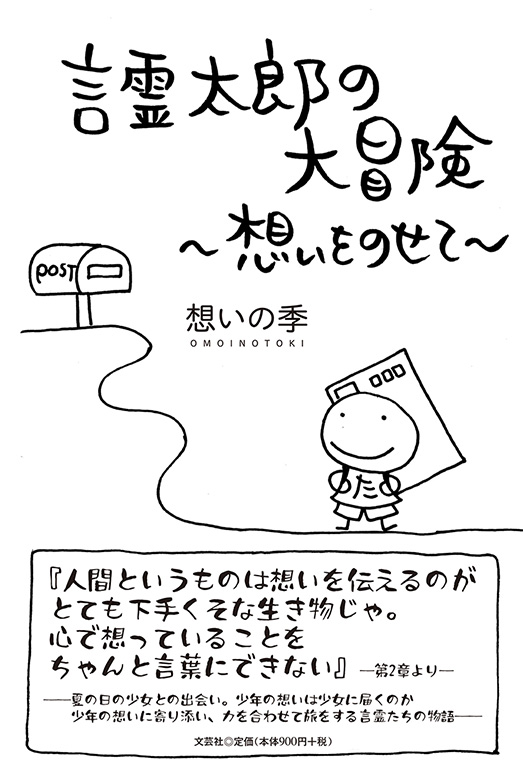 言霊太郎の
大冒険
〜想いをのせて〜
POST
想いの季
OMOINOTOKI
た
『人間というものは想いを伝えるのが
とても下手くそな生き物じゃ。
心で想っていることを
ちゃんと言葉にできない』 ―第2章より―
――夏の日の少女との出会い。少年の想いは少女に届くのか
少年の想いに寄り添い、力を合わせて旅をする言霊たちの物語――
文芸社◎定価(本体900円+税)